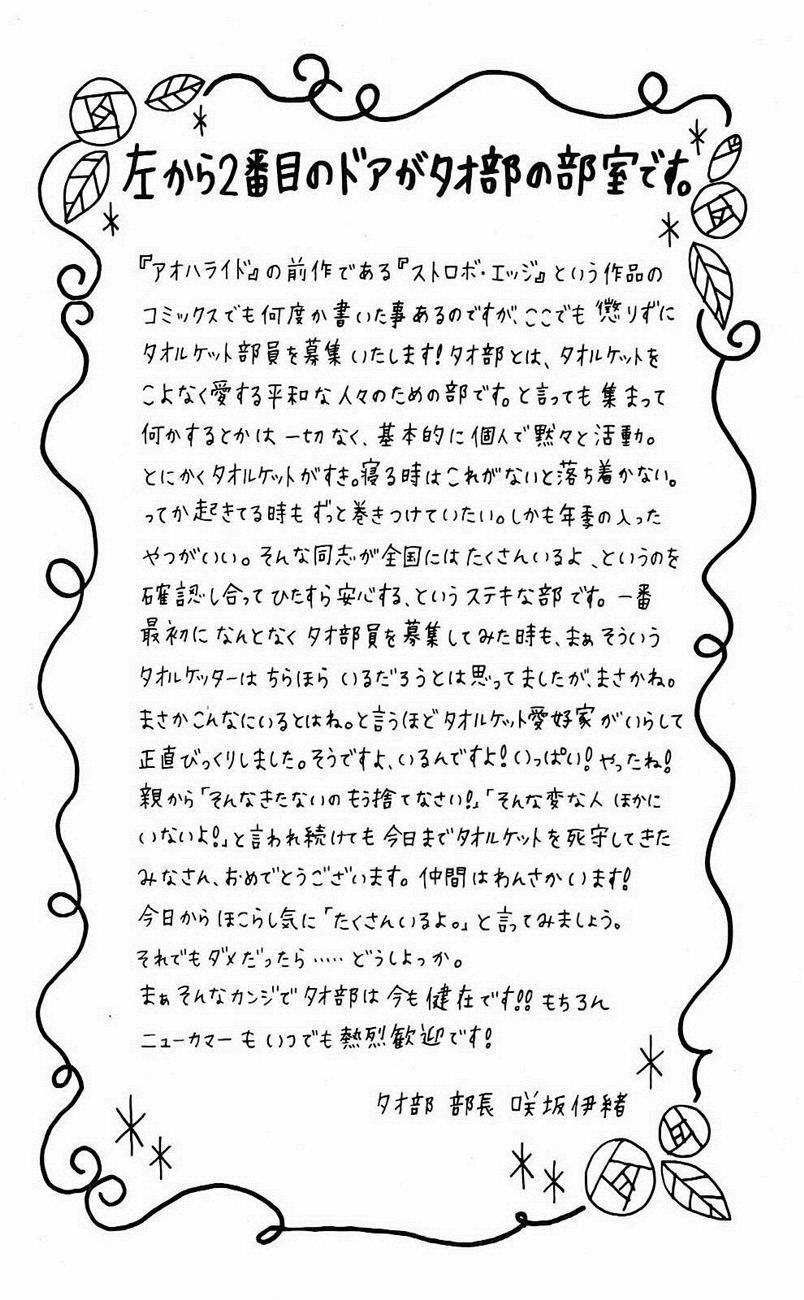 左から2番目のドアがタオ部の部室です。
『アオハライド』の前作である『ストロボ・エッジ』という作品の
コミックスでも何度か書いた事あるのですが、ここでも懲りずに
タオルケット部員を募集いたします!タオ部とは、タオルケットを
こよなく愛する平和な人々のための部です。と言っても集まって
何かするとかは一切なく、基本的に個人で黙々と活動。
とにかくタオルケットがすき。寝る時はこれがないと落ち着かない。
ってか起きてる時もずっと巻きつけていたい。しかも年季の入った
やつがいい。そんな同志が全国にはたくさんいるよ、というのを
確認し合ってひたすら安心する、というステキな部です。一番
最初になんとなくタオ部員を募集してみた時も、まぁそういう
タオルケッターはちらほらいるだろうとは思ってましたが、まさかね。
まさかこんなにいるとはね。と言うほどタオルケット愛好家がいらして
正直びっくりしました。そうですよ、いるんですよ!いっぱい!やったね!
親から「そんなきたないのもう捨てなさい!」「そんな変な人ほかに
いないよ!」と言われ続けても今日までタオルケットを死守してきた
みなさん、おめでとうございます。仲間はわんさかいます!
今日からほこらし気に「たくさんいるよ。」と言ってみましょう。
それでもダメだったら……どうしよっか。
まぁそんなカンジでタオ部は今も健在です!!もちろん
ニューカマーもいつでも熱烈歓迎です!
タオ部 部長 咲坂伊緒